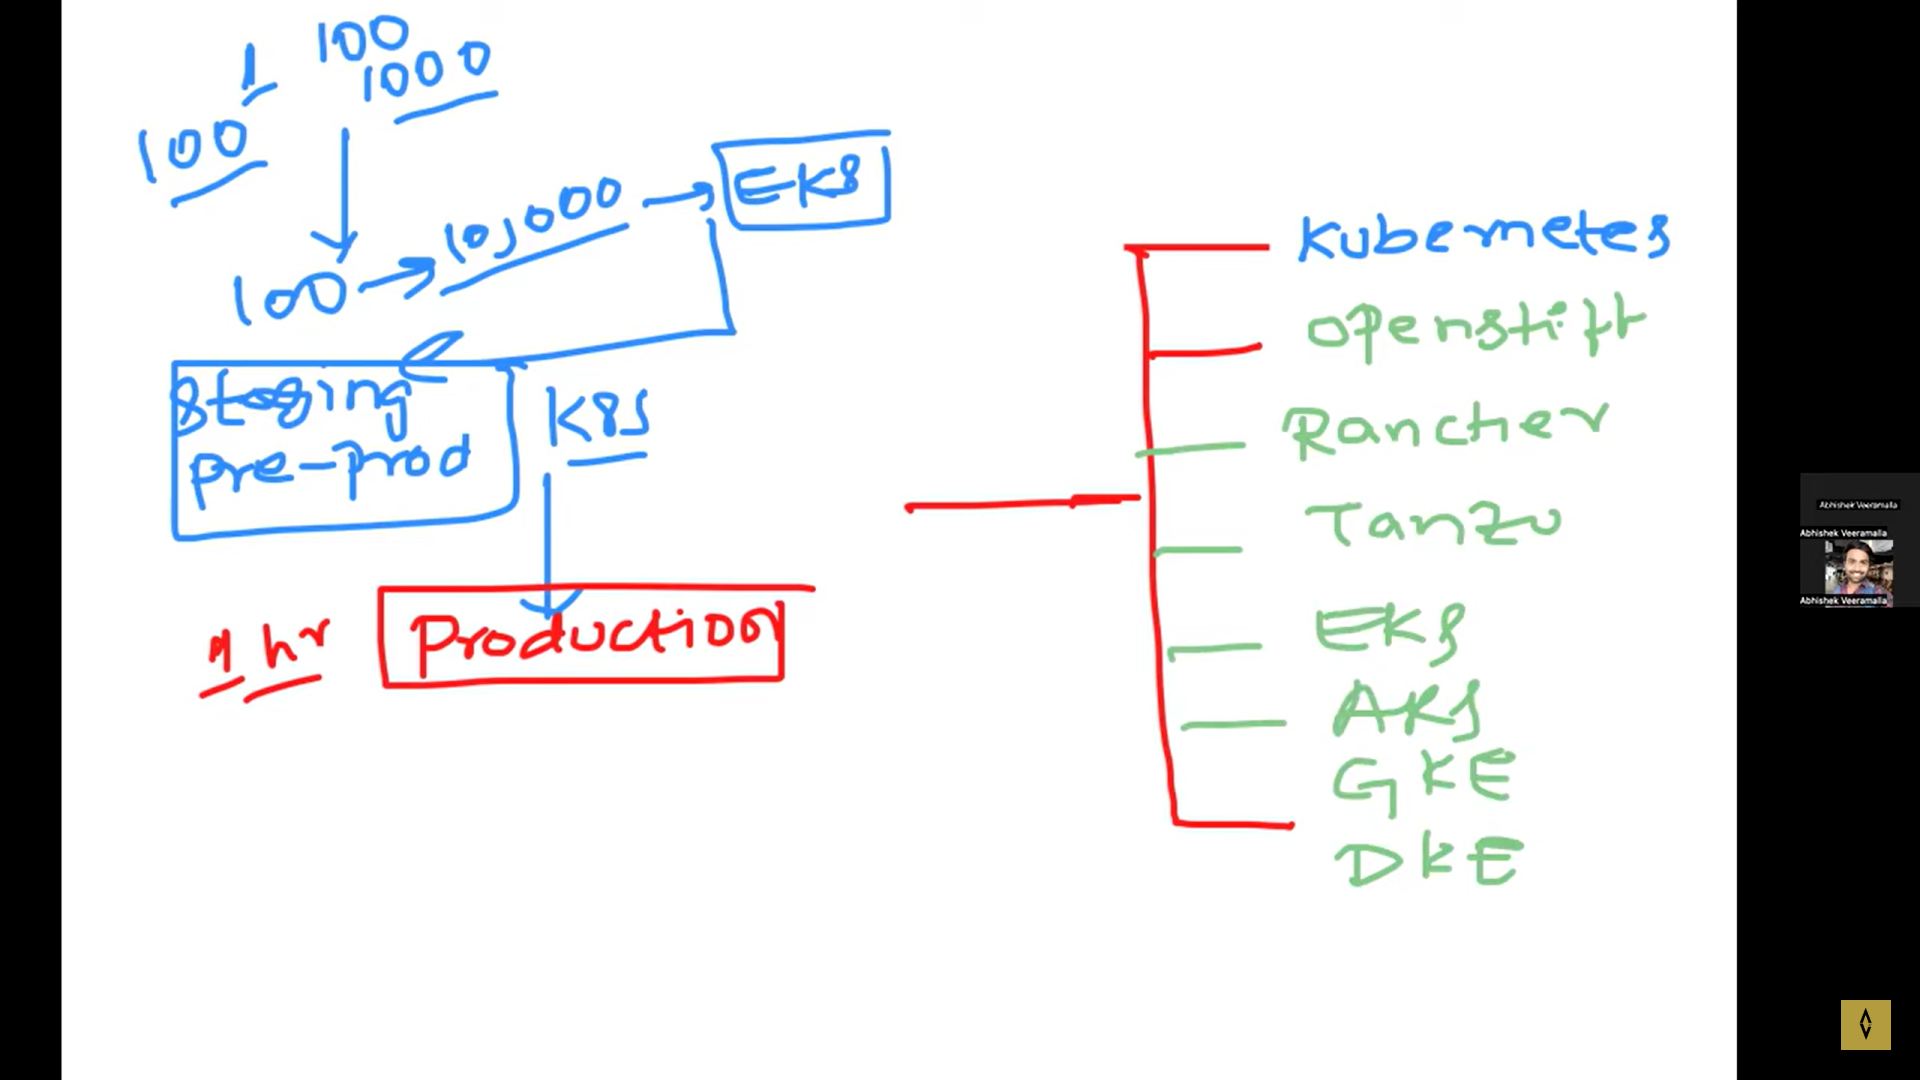 1 100
1000
100
100 → 10,000 → EKS
Staging
pre-prod
K8S
1 hr
Production
Kubernetes
Openshift
Rancher
Tanzu
EKS
AKS
GKE
DKE
Abhishek Veeramalla
Abhishek Veeramalla
Abhishek Veeramalla